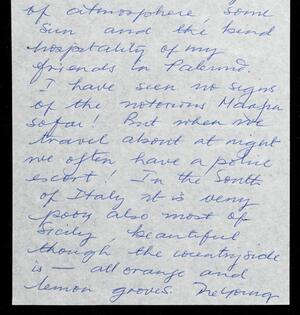 of atmosphere, some
sun and the kind
hospitality of my
friends in Palermo.
I have seen no signs
of the notorious Maafia
so far! But when we
travel about at night
we often have a police
escort! In the South
of Italy it is very
poor also most of
Sicily, beautiful
though the countryside
is — all orange and
lemon groves. The young